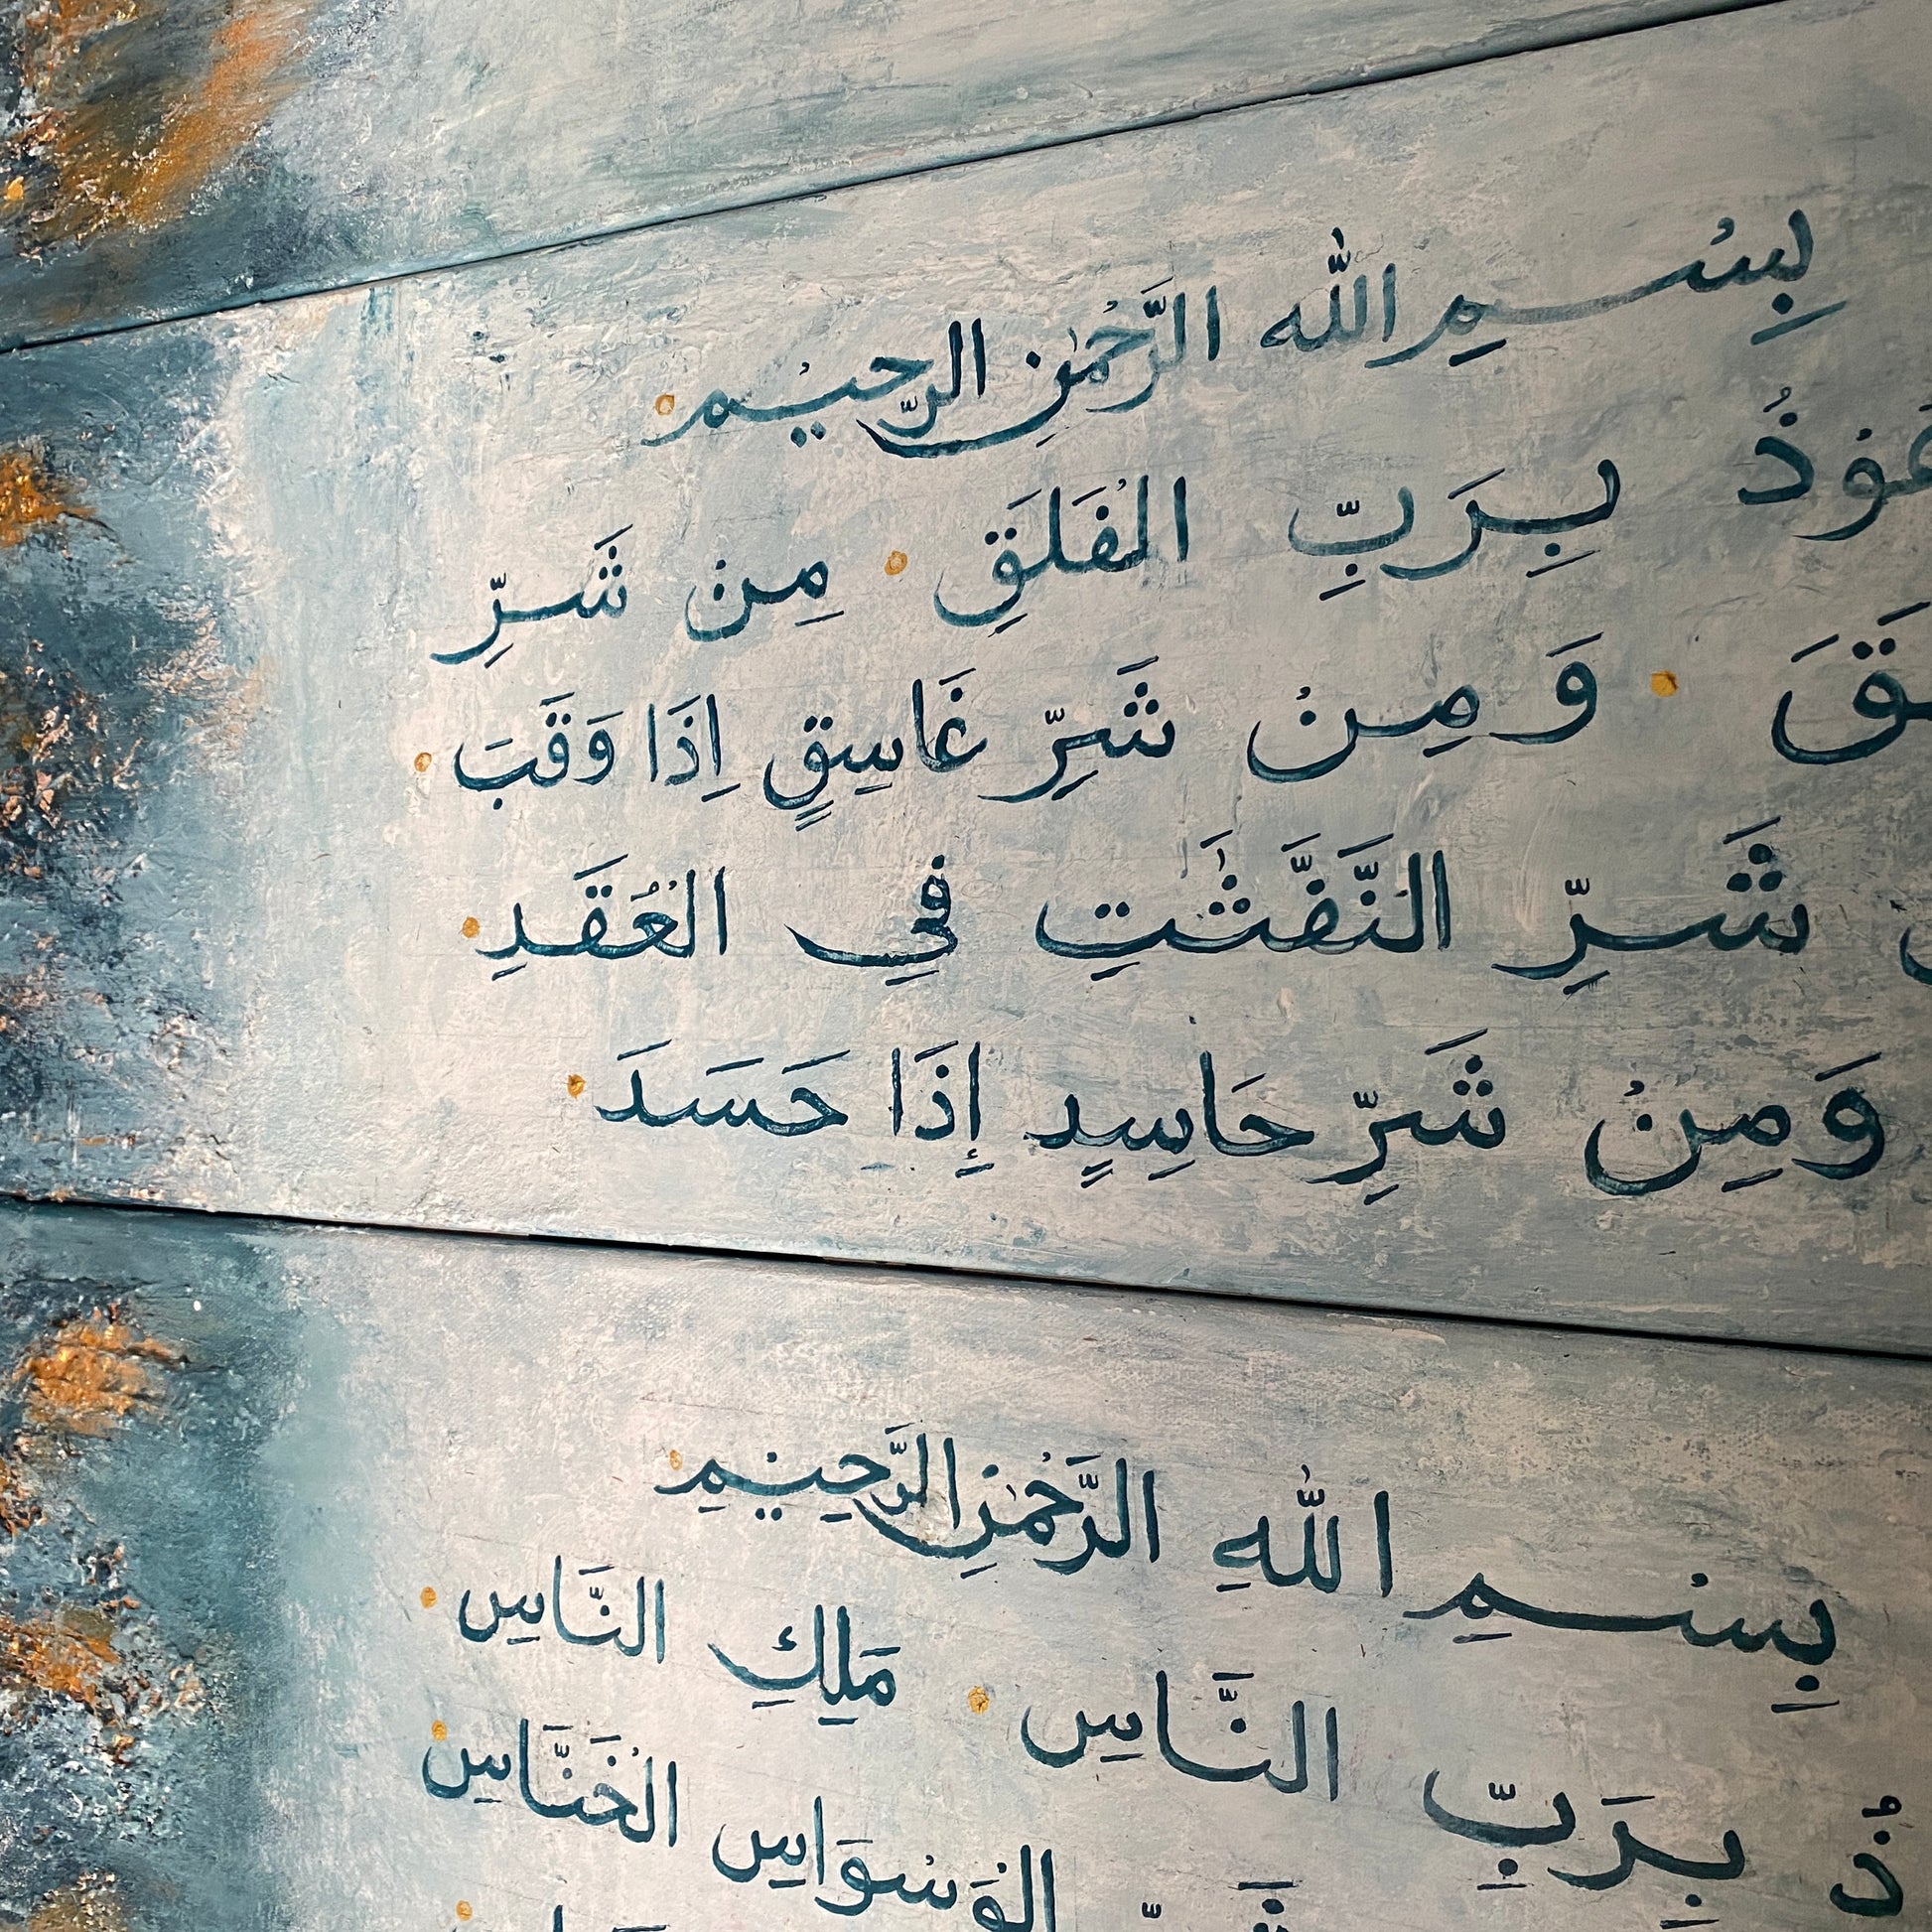 بِسْمِ اللّٰه الرَّحْمٰنِ الرَّحِيْم
بِرَبِّ الْفَلَقِ مِن شَرِّ
وَ مِنْ شَرِّ غَاسِقٍ اِذَا وَقَبَ
شَرِّ النَّفّٰثٰتِ فِي الْعُقَدِ
وَمِنْ شَرِّ حَاسِدٍ إِذَا حَسَدَ
بِسْمِ اللّٰهِ الرَّحْمٰنِ الرَّحِيْمِ
بِرَبِّ النَّاسِ مَلِكِ النَّاسِ
الْوَسْوَاسِ الْخَنَّاسِ